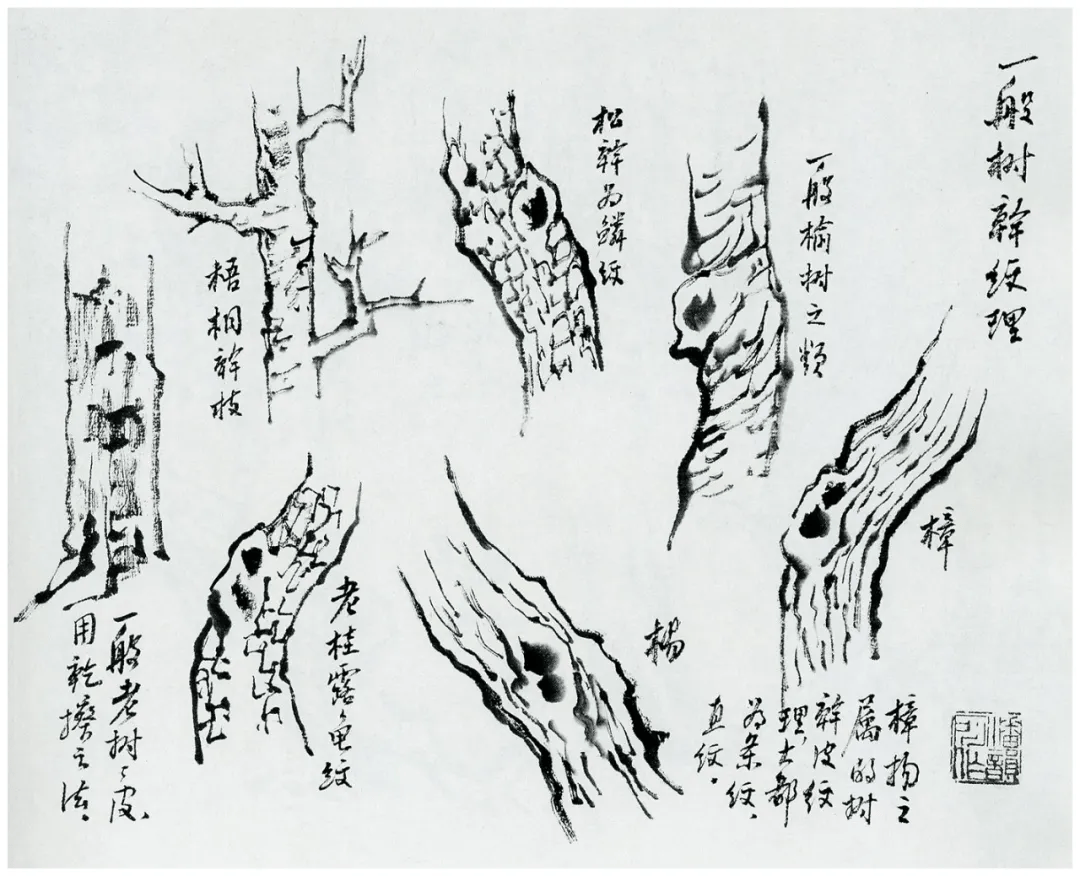 一般树幹纹理
一般榆树之類
松幹为鳞纹
梧桐幹枝
樟
樟杨之
属的树
幹皮纹
理,大都
为条纹、
直纹。
杨
老桂露龟纹
一般老树之皮、
用乾擦之法。
潘韻
所作